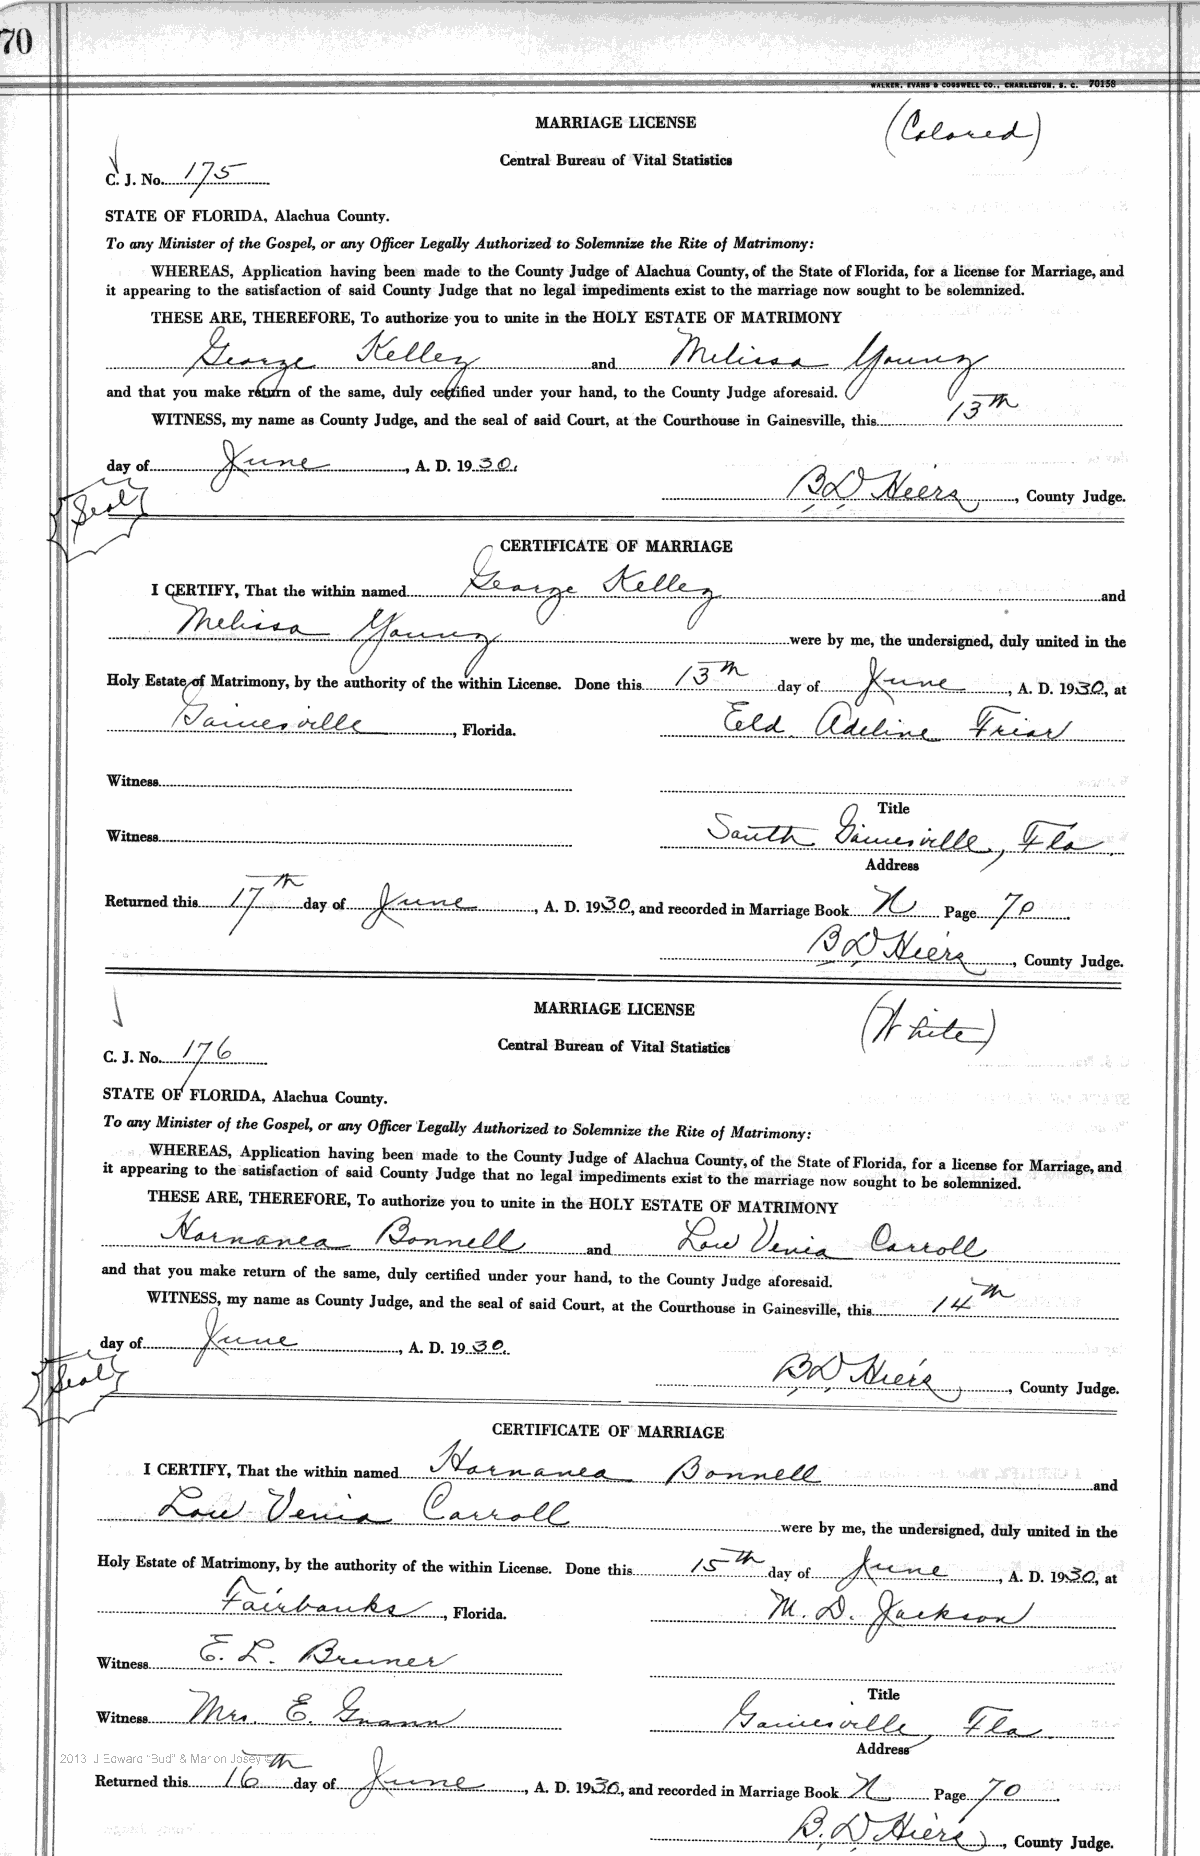 70
WALKER, EVANS & COGSWELL CO., CHARLESTON, S. C. 70158
MARRIAGE LICENSE
(Colored)
Central Bureau of Vital Statistics
C. J. No. 175
STATE OF FLORIDA, Alachua County.
To any Minister of the Gospel, or any Officer Legally Authorized to Solemnize the Rite of Matrimony:
WHEREAS, Application having been made to the County Judge of Alachua County, of the State of Florida, for a license for Marriage, and
it appearing to the satisfaction of said County Judge that no legal impediments exist to the marriage now sought to be solemnized.
THESE ARE, THEREFORE, To authorize you to unite in the HOLY ESTATE OF MATRIMONY
George Kelley and Melissa Young
and that you make return of the same, duly certified under your hand, to the County Judge aforesaid.
WITNESS, my name as County Judge, and the seal of said Court, at the Courthouse in Gainesville, this 13th
day of June, A. D. 1930.
Seal
B D Hiers, County Judge.
CERTIFICATE OF MARRIAGE
I CERTIFY, That the within named George Kelley and
Melissa Young were by me, the undersigned, duly united in the
Holy Estate of Matrimony, by the authority of the within License. Done this 13th day of June, A. D. 1930, at
Gainesville, Florida. Eld. Adeline Friar
Witness
Title
Witness South Gainesville, Fla.
Address
Returned this 17th day of June, A. D. 1930, and recorded in Marriage Book N Page 70
B D Hiers, County Judge.
MARRIAGE LICENSE
(White)
Central Bureau of Vital Statistics
C. J. No. 176
STATE OF FLORIDA, Alachua County.
To any Minister of the Gospel, or any Officer Legally Authorized to Solemnize the Rite of Matrimony:
WHEREAS, Application having been made to the County Judge of Alachua County, of the State of Florida, for a license for Marriage, and
it appearing to the satisfaction of said County Judge that no legal impediments exist to the marriage now sought to be solemnized.
THESE ARE, THEREFORE, To authorize you to unite in the HOLY ESTATE OF MATRIMONY
Hornanea Bonnell and Lou Venia Carroll
and that you make return of the same, duly certified under your hand, to the County Judge aforesaid.
WITNESS, my name as County Judge, and the seal of said Court, at the Courthouse in Gainesville, this 14th
day of June, A. D. 1930.
Seal
B D Hiers, County Judge.
CERTIFICATE OF MARRIAGE
I CERTIFY, That the within named Hornanea Bonnell and
Lou Venia Carroll were by me, the undersigned, duly united in the
Holy Estate of Matrimony, by the authority of the within License. Done this 15th day of June, A. D. 1930, at
Fairbanks, Florida. M. D. Jackson
Witness E. L. Bruner
Title
Witness Mrs. E. Gnann Gainesville, Fla.
Address
2013 J Edward "Bud" & Marion Josey ©
Returned this 16th day of June, A. D. 1930, and recorded in Marriage Book N Page 70
B. D Hiers, County Judge.